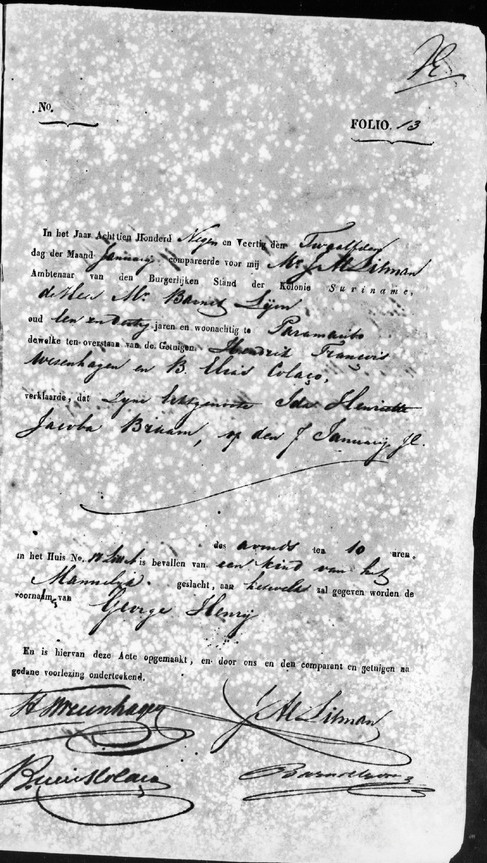 No.
FOLIO. 13
In het Jaar Achttien Honderd Negen en Veertig den Twaalfden
dag der Maand Januarij compareerde voor mij Mr. J. Al Litman
Ambtenaar van den Burgerlijken Stand der Kolonie Suriname,
de Heer Mr Barnet Lyon
oud een en dertig jaren en woonachtig te Paramaribo
dewelke ten overstaan van de Getuigen Hendrik Francois
Wesenhagen en B. Elias Colaço,
verklaarde, dat zyne Echtgenoote Ida Henriette
Jacoba Braam, op den J Januarij, jl.
des avonds ten 10 uren.
in het Huis No. is bevallen van een kind van het
Mannelyk geslacht, aan hetwelke zal gegeven worden de
voornaam van George Henry
En is hiervan deze Acte opgemaakt, en door ons en den comparent en getuigen na
gedane voorlezing onderteekend.
H Wesenhagen
J. Al Litman
B Elias Colaço
Barnet Lyon